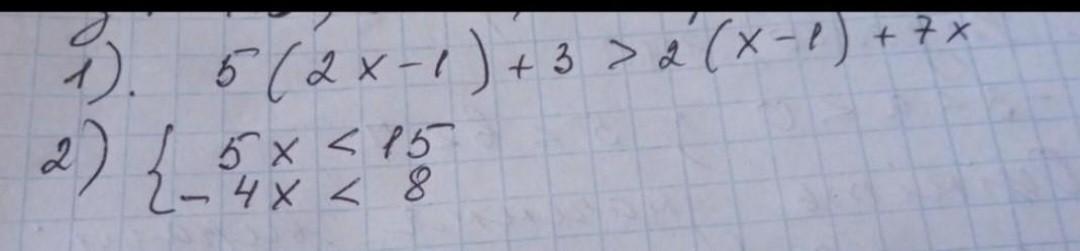 1). 5(2x-1)+3>2(x-1)+7x
2) { 5x < 15
-4x < 8